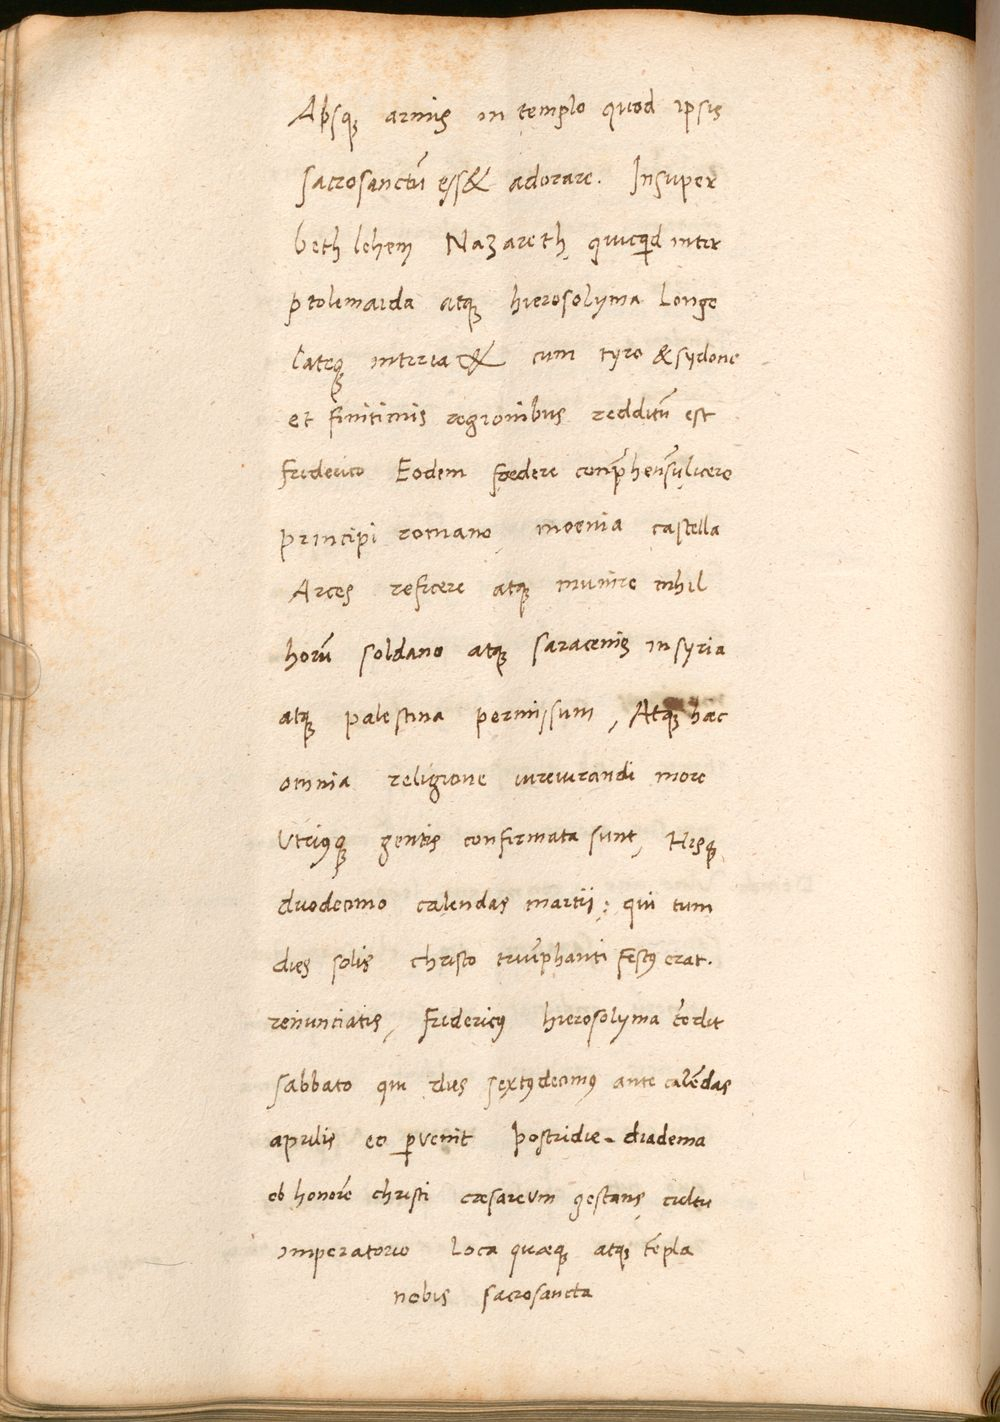 Absq; armis in templo quod ipsis
sacrosanctū ess& adorare. Insuper
beth lehem Nazareth, quicqd inter
ptolemaida atq; hierosolyma Longe
lateq; interia& cum tyro & sydone
et finitimis regionibus redditū est
friderico Eodem foedere comp̄hensū, licere
principi romano, moenia castella
Arces reficere atq; munire nihil
horū soldano atq; saracenis in syria
atq; palestina permissum, Atq; haec
omnia religione iureiurandi more
Utriusq; gentis confirmata sunt, Hisq;
duodecimo calendas martii; qui tum
dies solis christo triūphanti festus erat.
renuntiatis, fridericus hierosolyma tēdit
sabbato qui dies sextusdecimus ante calēdas
aprilis eo pvenit postridie. diadema
ob honorē christi caesareum gestans, cultu
imperatorio Loca quaeq; atq; tēpla
nobis sacrosancta